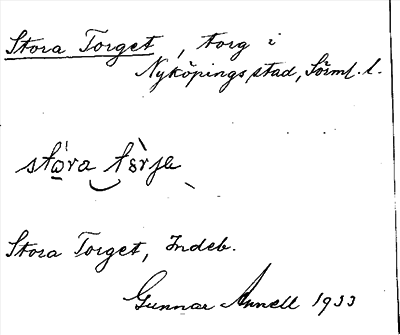 Stora Torget, torg i
Nyköpings stad, Sörml. l.
stora
Stora Torget, Indeb.
Gunnar Annell 1933